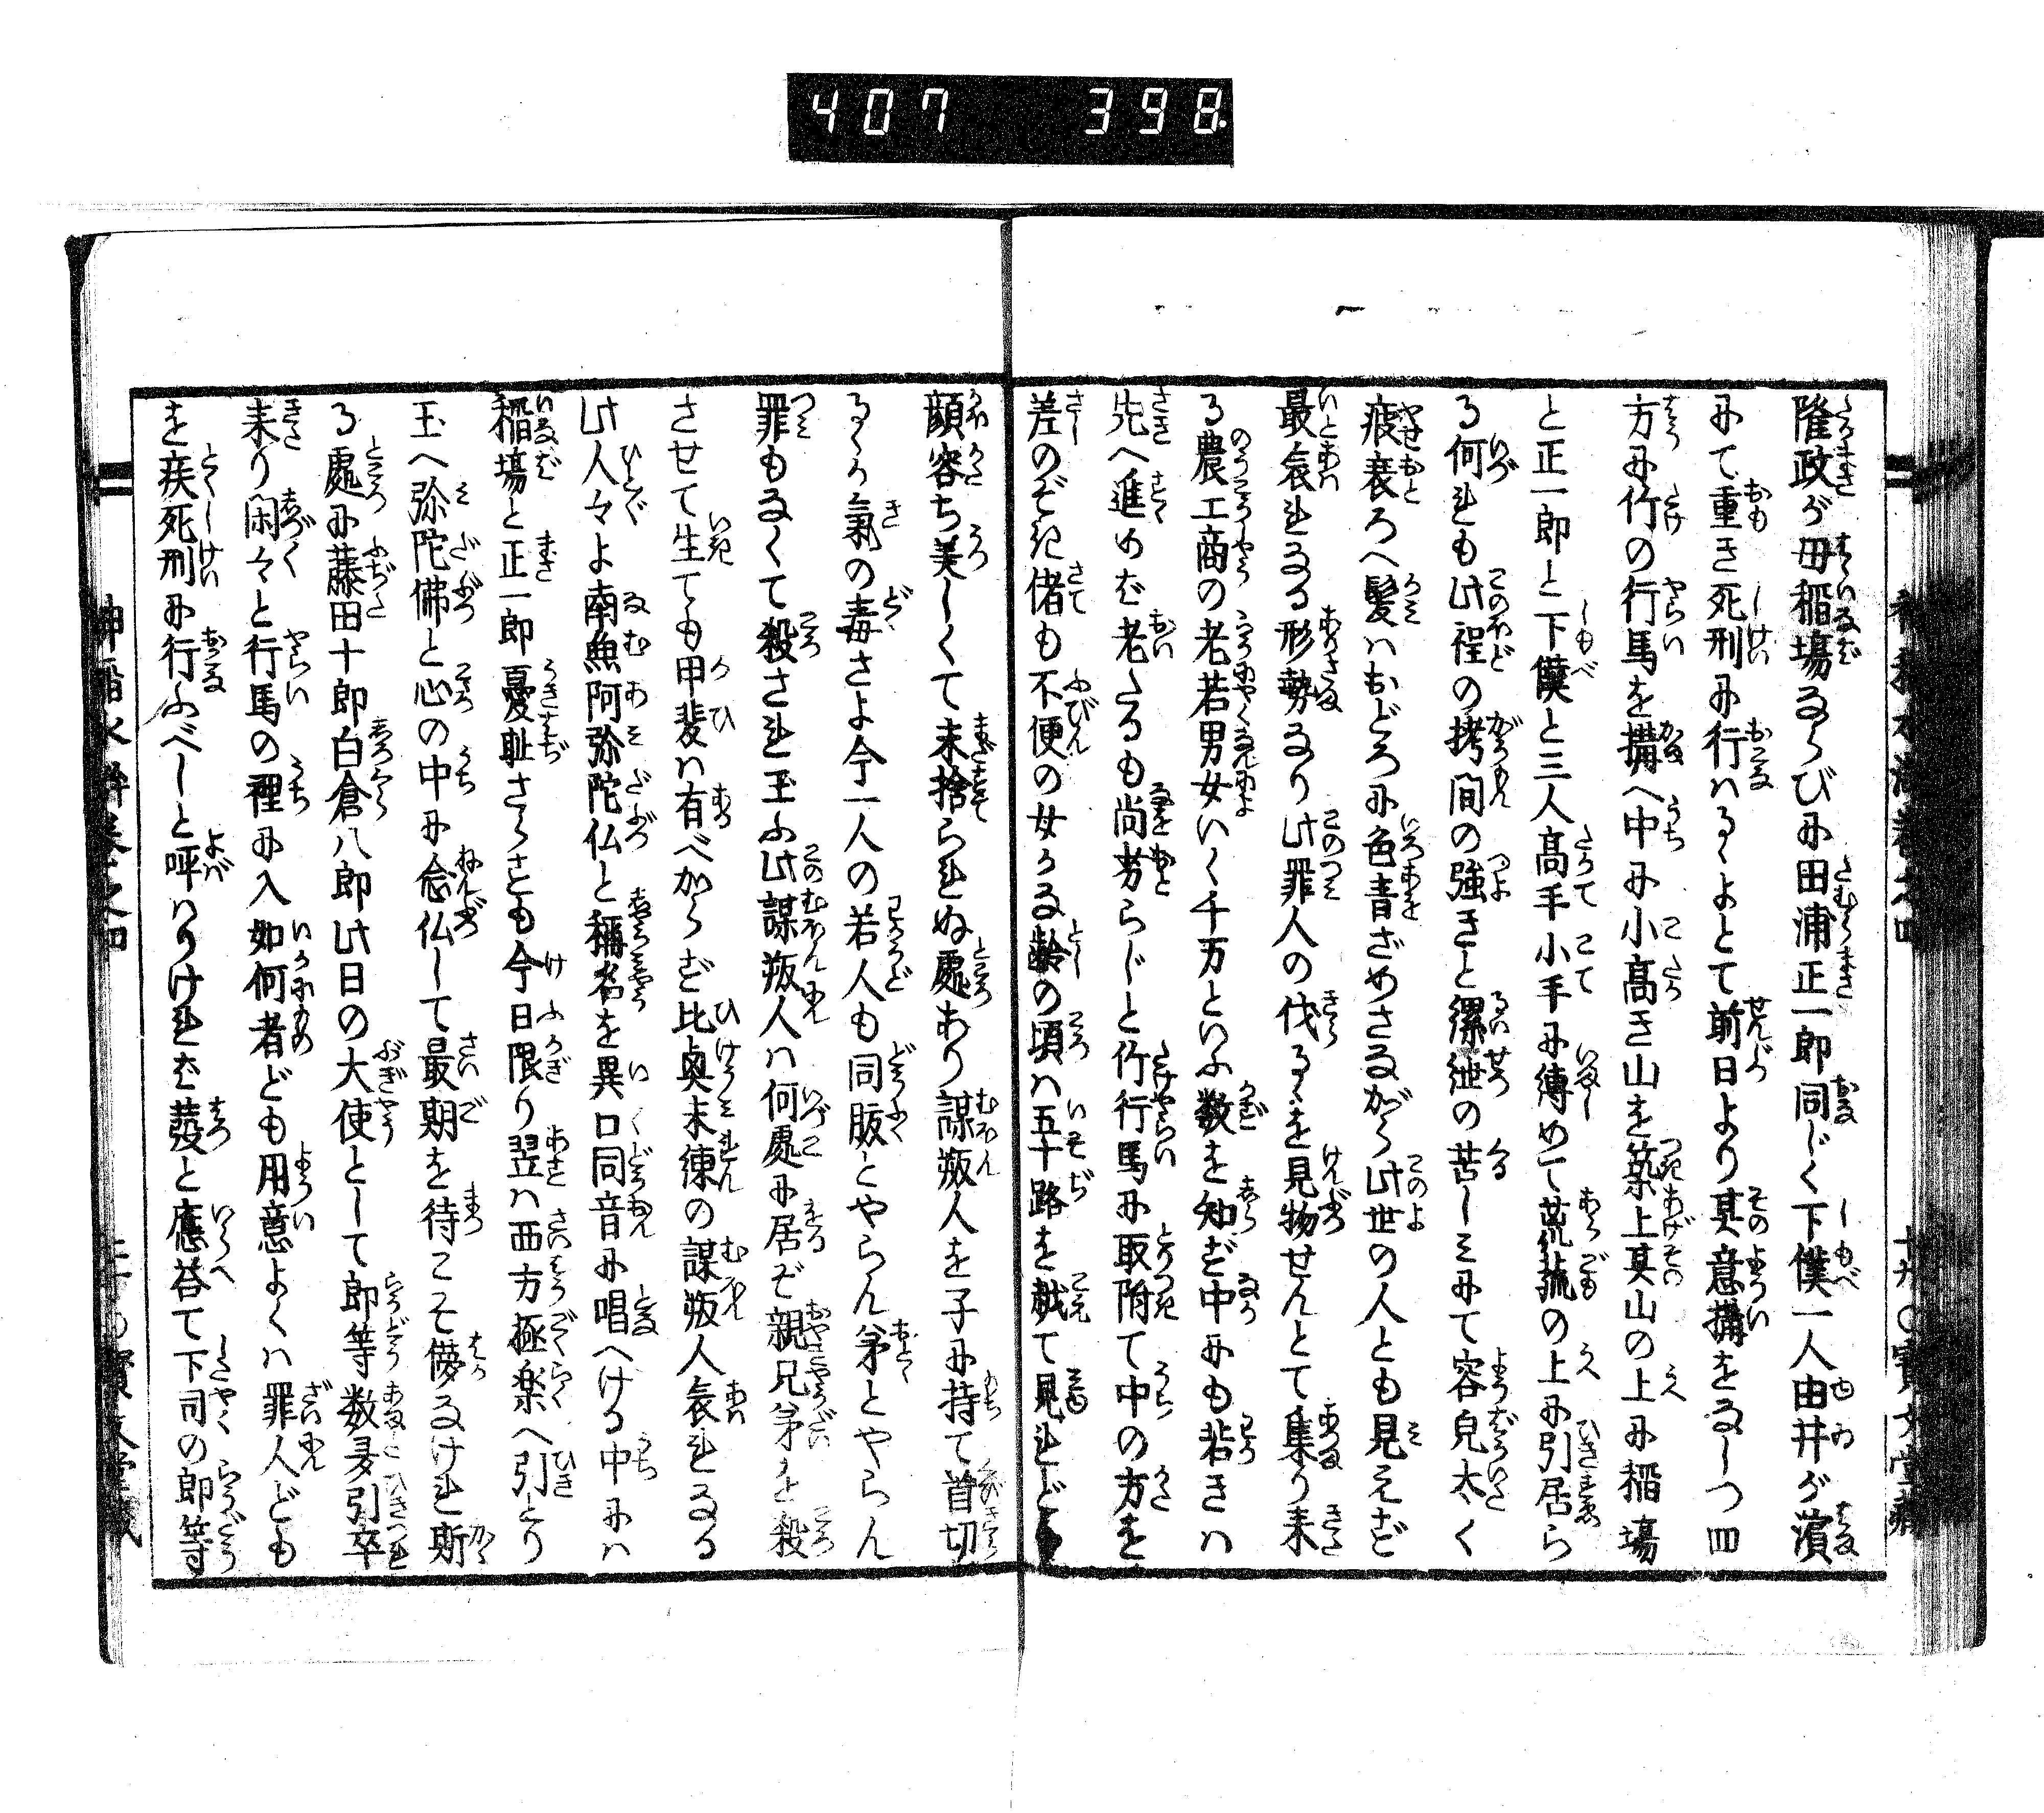 407 398.
隆政が母稲塲ならびに田浦正一郎同じく下僕一人由井が濱
にて重き死刑に行はるゝよとて前日より其意搆をなしつ四
方に竹の行馬を搆へ中に小高き山を築上其山の上に稲塲
と正一郎と下僕と三人高手小手に縛めて荒菰の上に引居ら
る何れも此程の拷問の強きと縲紲の苦しみにて容皃太く
疲衰ろへ髪はおどろに色青ざめさながら此世の人とも見えず
最哀れなる形勢なり此罪人の伐るゝを見物せんとて集り来
る農工商の老若男女いく千万といふ数を知ず中にも若きは
先へ進めば老たるも尚劣らじと竹行馬に取附て中の方を
差のぞき偖も不便の女かな齢の頃は五十路を越て見れども
顔容ち美しくて未捨られぬ處あり謀叛人を子に持て首切
るゝ氣の毒さよ今一人の若人も同腹とやらん弟とやらん
罪もなくて殺され玉ふ此謀叛人は何處に居ぞ親兄弟を殺
させて生ても甲斐は有べからず比興未練の謀叛人哀れなる
此人々よ南無阿弥陀仏と稱名を異口同音に唱へける中には
稲塲と正一郎憂耻さらさも今日限り翌は西方極楽へ引とり
玉へ弥陀佛と心の中に念仏して最期を待こそ儚なけれ斯
る處に藤田十郎白倉八郎此日の大使として郎等数多引卒
来り閑々と行馬の裡に入如何者ども用意よくは罪人ども
を疾死刑に行ふべしと呼はりければ發と應荅て下司の郎等